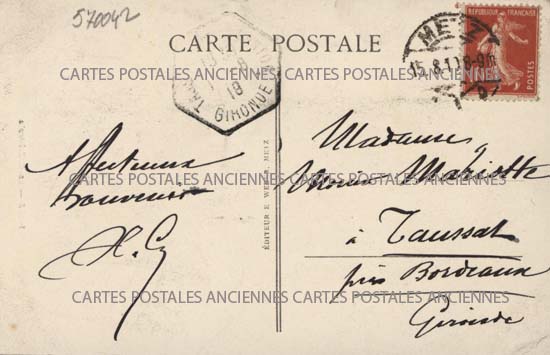 570042
CARTE POSTALE
METZ
15.8.19 8-9m
RÉPUBLIQUE FRANÇAISE
POSTES
GIRONDE
18
CARTES POSTALES ANCIENNES CARTES POSTALES ANCIENNES
Affectueux
Souvenir
H. G
ÉDITEUR E. WEBER, METZ
Madame
Mariotte
à Taussat
près Bordeaux
Gironde
CARTES POSTALES ANCIENNES CARTES POSTALES ANCIENNES
CARTES POSTALES ANCIENNES CARTES POSTALES ANCIENNES